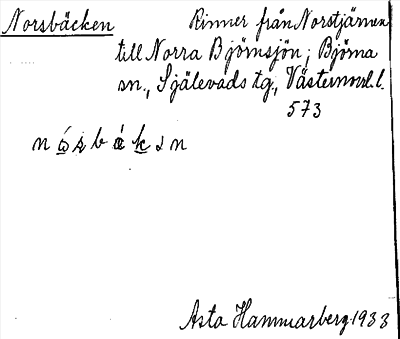 Norsbäcken Rinner från Norstjärnen
till Norra Björnsjön; Björna
sn., Själevads tg, Västernorrl. l.
573
Asta Hammarberg 1933